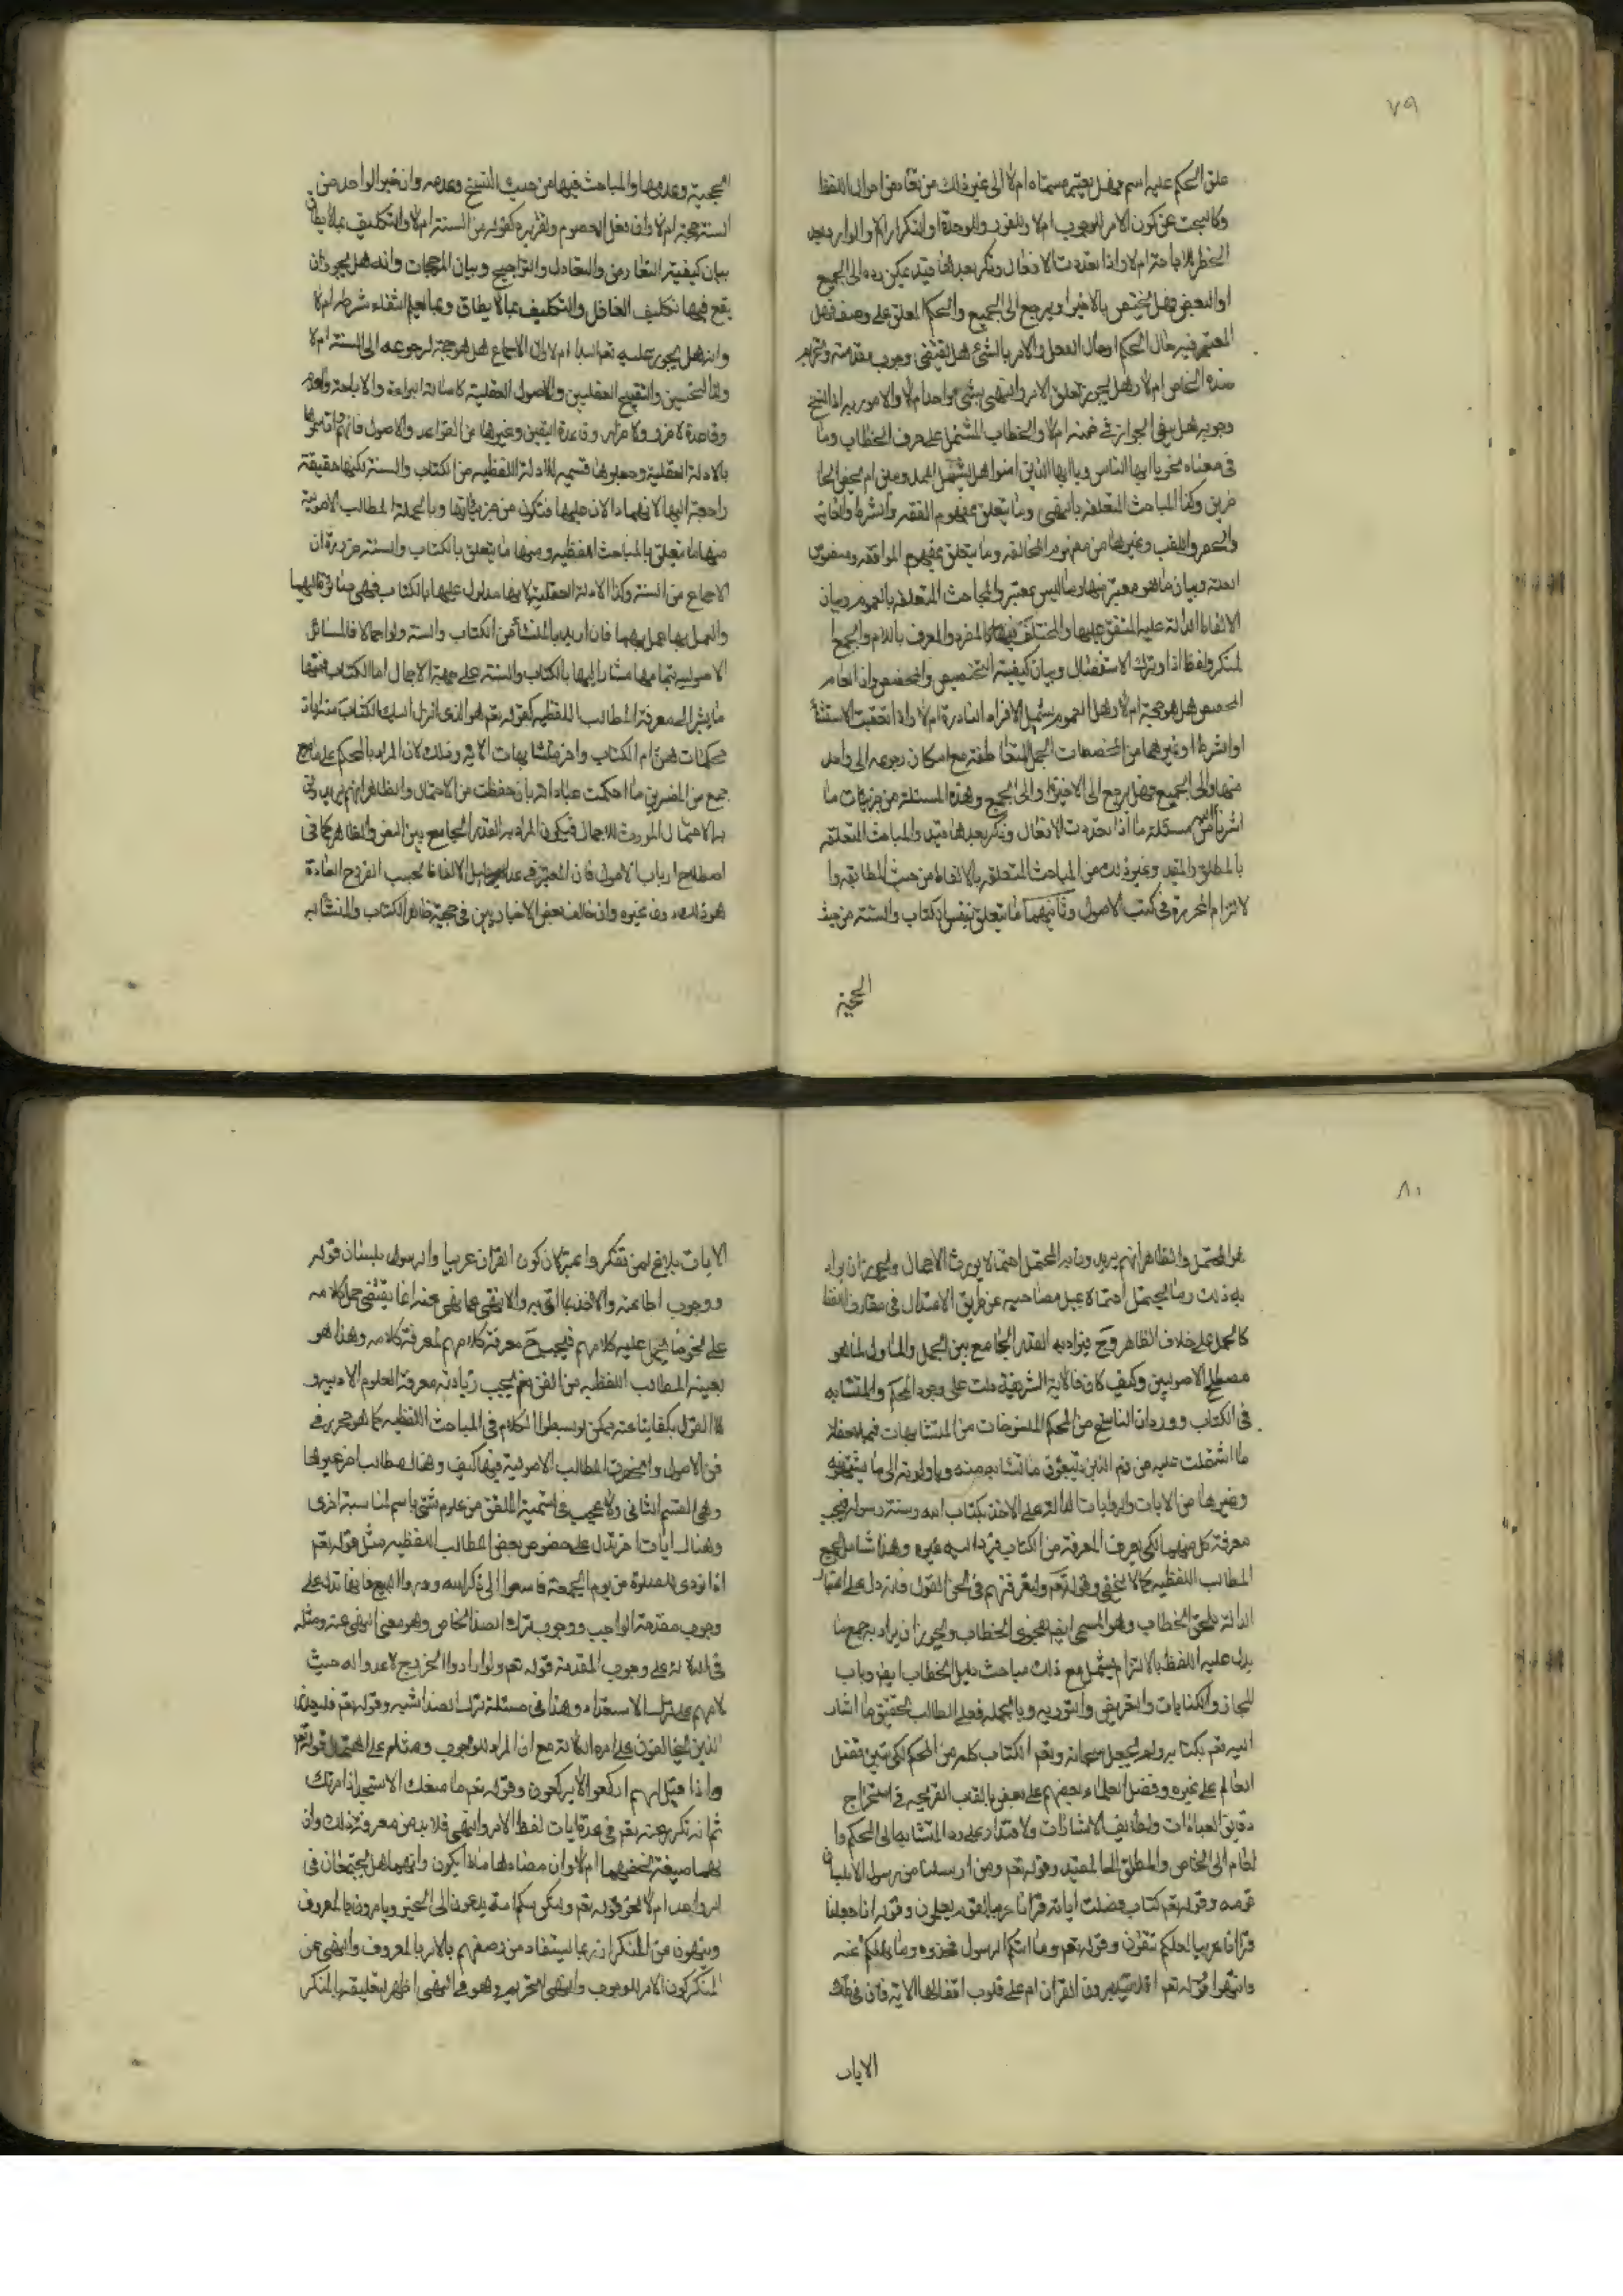 ٧٩
علق الحكم عليه اسم فهل يعتبر مسماه ام لا الى غير ذلك من نقادمن احوال اللفظ
وكالبحث عن كون الامر للوجوب ام لا وللفور وللوحدة او التكرار ام لا والوارد بعد
الحظر للاباحة ام لا واذا تعددت الافعال وذكر بعدها قيد يمكن رده الى الجميع
او البعض فهل يختص بالاخير او يرجع الى الجميع والحكم المعلق على وصف فهل
المعتبر فيه حال الحكم او حال الفعل والامر بالشئ هل يقتضى وجوب مقدمته وتحريم
ضده الخاص ام لا وهل يجوز تعلق الامر والنهى بشئ واحد ام لا والامور به اذا نسخ
وجوبه هل يبقى الجواز فى ضمنه ام لا والخطاب المشتمل على حرف الخطاب وما
فى معناه نحو يا ايها الناس ويا ايها الذين امنوا هل يشتمل المعدومين ام يختص بالحا
ضرين وكذا المباحث المتعلقة بالنهى وما يتعلق بمفهوم الفقه والشرط والغاية
والحصر واللقب وغيرها من مفهوم المخالفة وما يتعلق بمفهوم الموافقة ومنصوص
العلة وبيان ما هو معتبر منها وما ليس بمعتبر والمباحث المتعلقة بالعموم وبيان
الالفاظ الدالة عليه المتفق عليها والمختلف فيها كالمفرد المعرف باللام والجمع ا
لمنكر ولفظ اذا وترك الاستفصال وبيان كيفية التخصيص والمخصص وان العام
المخصص هل هو حجة ام لا وهل العموم يشمل الافراد النادرة ام لا واذا تعقبت الاستثنا
او الشرط او غيرهما من المخصصات الجمل المتعاطفة مع امكان رجوعه الى واحد
منها والى الجميع فهل يرجع الى الاخيرة او الى الجميع وهذه المسئلة من جزئيات ما
اشرنا اليه من مسئلة ما اذا تعددت الافعال وذكر بعدها قيد والمباحث المتعلقة
بالمطلق والمقيد وغير ذلك من المباحث المتعلقة بالالفاظ من حيث المطابقة وا
لالتزام المحررة فى كتب الاصول وثانيهما ما يتعلق بنفس الكتاب والسنة من حيث
الحجية
الحجية وعدمها والمباحث فيها من حيث النسخ وعدمه وان خبر الواحد من
السنة حجة ام لا وان فعل المعصوم وتقريره كقوله من السنة ام لا والتكليف بما لا يطاق
بيان كيفية التعارض والتعادل والتراجيح وبيان المرجحات وانه هل يجوز ان
يقع فيها تكليف الغافل والتكليف بما لا يطاق وبما علم انتفاء شرطه ام لا
وانه هل يجوز عليه تعم البدا ام لا وان الاجماع هل هو حجة لرجوعه الى السنة ام لا
واما التحسين والتقبيح العقليين والاصول العقلية كاصالة البراءة والاباحة والعدم
وقاعدة لا ضرر ولا ضرار وقاعدة اليقين وغيرها من القواعد والاصول فانهم وان سموها
بالادلة العقلية وجعلوها قسيمة للادلة اللفظية من الكتاب والسنة لكنها حقيقة
راجعة اليها لانهما دالان عليها فتكون من جزئياتها وبالجملة المطالب الاصولية
منها ما يتعلق بالمباحث اللفظية ومنها ما يتعلق بالكتاب والسنة ضرورة ان
الاجماع من السنة وكذا الادلة العقلية لانها مدلول عليها بالكتاب فهى
والعمل بها عمل بهما فان اريد بالمنشأ من الكتاب والسنة ولو اجمالا فالمسائل
الاصولية بتمامها مشار اليها بالكتاب والسنة على جهة الاجمال اما الكتاب فمنها
ما يشير الى معرفة المطالب اللفظية كقوله تعم هو الذى انزل اليك الكتاب منه ايات
محكمات هن ام الكتاب واخر متشابهات الاية وذلك لان المراد بالمحكم على ما صرح
جمع من المفسرين ما احكمت عباداته بان حفظت من الاحتمال والظاهر انهم يريدون
به الاحتمال المورث للاجمال فيكون المراد به القدر الجامع بين النص والظاهر كما فى
اصطلاح ارباب الاصول فان المعتبر فى مداليل الالفاظ بحسب العرف العادة
هو ذلك دون غيره وان خالف بعض الاخباريين فى حجية ظاهر الكتاب والمتشابه
٨٠
هو المحتمل والظاهر انهم يريدون به المحتمل احتمالا يورث الاجمال ويجوز ان يراد
به ذلك وما يحتمل احتمالا يميل بصاحبه عن طريق الاعتدال فى مفارقة اللفظ
كالحمل على خلاف الظاهر وح فيراد به القدر الجامع بين المجمل والماول كما هو
مصطلح الاصوليين وكيف كان فالاية الشريفة دلت على وجود المحكم والمتشابه
فى الكتاب ووردان الناسخ من المحكم والمنسوخات من المتشابهات فبملاحظة
ما اشتملت عليه من ذم الذين يتبعون ما تشابه منه وياولونه الى ما يشتهونه
وغيرها من الايات والروايات الدالة على الاخذ بكتاب الله وسنة رسوله يجب
معرفة كل منهما لكى يعرف المعرفة من الكتاب فيرد اليه غيره وهذا شامل لجميع
المطالب اللفظية كما لا يخفى وقوله تعم ولتعرفنهم فى لحن القول فانه دل على اعتبار
الدالة بلحن الخطاب وهو المسمى ايضا بفحوى الخطاب ويجوز ان يراد به جمع ما
يدل عليه اللفظ بالالتزام فيشمل مع ذلك مباحث دليل الخطاب ايضا وباب
المجاز والكنايات والتعريض والتورية وبالجملة فعلى الطالب تحقيق ما اشار
اليه تعم بكتابه ولم يجعل سبحانه وتعم الكتاب كله من المحكم لكى يتبين فضل
العالم على غيره وفضل العلماء بعضهم على بعض باتعاب القريحة فى استخراج
دقايق العبارات ولطايف الاشارات والاقتدار على رد المتشابه الى المحكم وا
لعام الى الخاص والمطلق الى المقيد وقوله تعم وما ارسلنا من رسول الا بلسان
قومه وقوله تعم كتاب فصلت اياته قرانا عربيا لقوم يعلمون وقوله انا جعلناه
قرانا عربيا لعلكم تتقون وقوله تعم وما اتيكم الرسول فخذوه وما نهيكم عنه
فانتهوا وقوله تعم افلا يتدبرون القران ام على قلوب اقفالها الاية فان فى تلك
الايات
الايات بلاغ لمن تفكر واعتبر لان كون القران عربيا والرسول بلسان قومه
ووجوب اطاعته والاخذ بما اتى به والانتهى عما نهى عنه انما يقتضى حمل كلامه
على نحو ما يحمل عليه كلامهم فيجب ح معرفة كلامهم لمعرفة كلامه وهذا هو
بعينه المطالب اللفظية من الفن نعم يجب زيادته معرفة العلوم الادبية و
لا القول بكفايتنا عنه يمكن لو بسطوا الكلام فى المباحث اللفظية كما هو محرر فى
فن الاصول وانحصرت المطالب الاصولية فيها كيف وهناك مطالب اخر غيرها
وهى القسم الثانى ولا عيب فى تسمية الملفق من علوم شتى باسم لمناسبة اخرى
وهناك ايات اخر تدل على خصوص بعض المطالب اللفظية مثل قوله تعم
اذا نودى للصلوة من يوم الجمعة فاسعوا الى ذكر الله وذروا البيع فانها تدل على
وجوب مقدمة الواجب ووجوب ترك الضد الخاص وهو معنى النهى عنه ومثله
فى الدلالة على وجوب المقدمة قوله تعم ولو ارادوا الخروج لاعدوا له حيث
لامهم على ترك الاستعداد وهذا فى مسئلة ترك الضد اشبه وقوله تعم فليحذر
الذين يخالفون عن امره الدلالة مع ان المراد للوجوب
واذا قيل لهم اركعوا لا يركعون وقوله تعم ما منعك الا تسجد اذ امرتك
ثم انه تكرر منه تعم فى عدة ايات لفظ الامر والنهى فلا بد من معرفة ذلك وان
لهما صيغة تخصهما ام لا وان مفادهما ماذا يكون وانهما هل يجتمعان فى
امر واحد ام لا نحو قوله تعم ولتكن منكم امة يدعون الى الخير ويامرون بالمعروف
وينهون عن المنكر انه ربما يستفاد من وصفهم بالامر بالمعروف والنهى عن
المنكر كون الامر للوجوب والنهى للتحريم وهو فى النهى اظهر لتعليقه بالمنكر